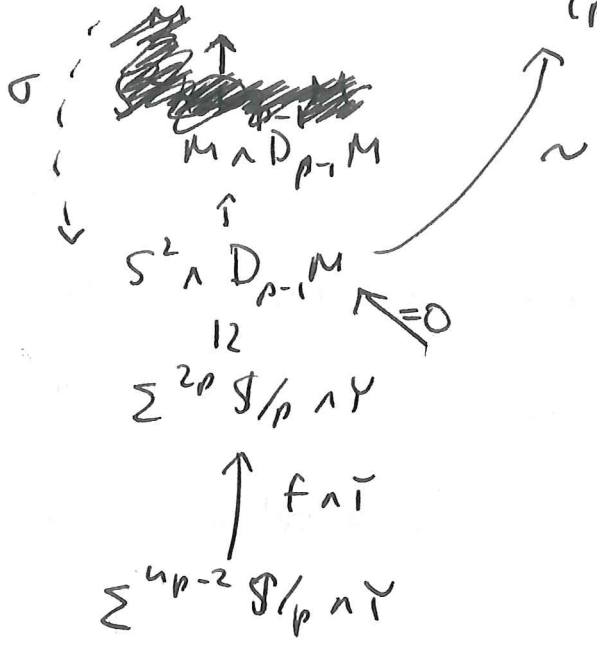 σ
M ∧ D_{p-1} M
↑
S^2 ∧ D_{p-1} M
∼
=0
Σ^{2p} 𝕊/p ∧ Y
f ∧ 1
Σ^{4p-2} 𝕊/p ∧ Y